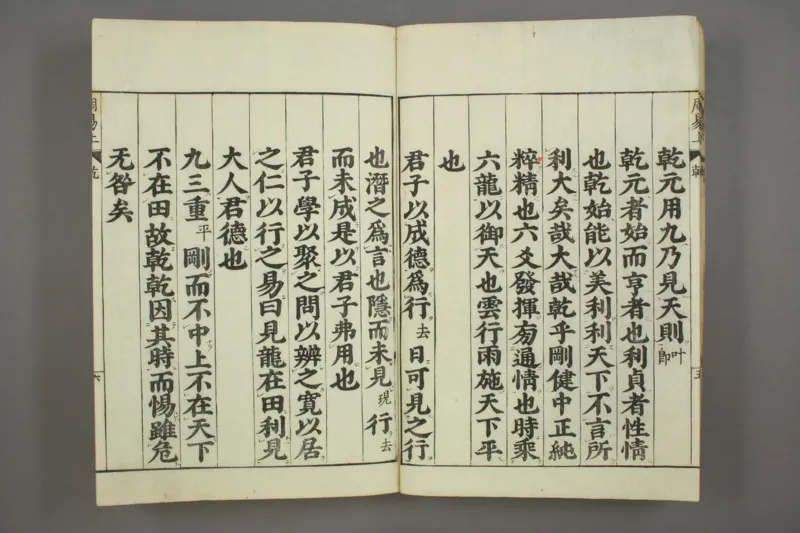 周易上 乾 五
乾元用九乃見天則叶即
乾元者始而亨者也利貞者性情
也乾始能以美利利天下不言所
利大矣哉大哉乾乎剛健中正純
粹精也六爻發揮旁通情也時乘
六龍以御天也雲行雨施天下平
也
君子以成德爲行去日可見之行
也潛之爲言也隱而未見現行去
而未成是以君子弗用也
君子學以聚之問以辨之寬以居
之仁以行之易曰見龍在田利見
大人君德也
九三重平剛而不中上不在天下
不在田故乾乾因其時而惕雖危
无咎矣
周易上 乾 六